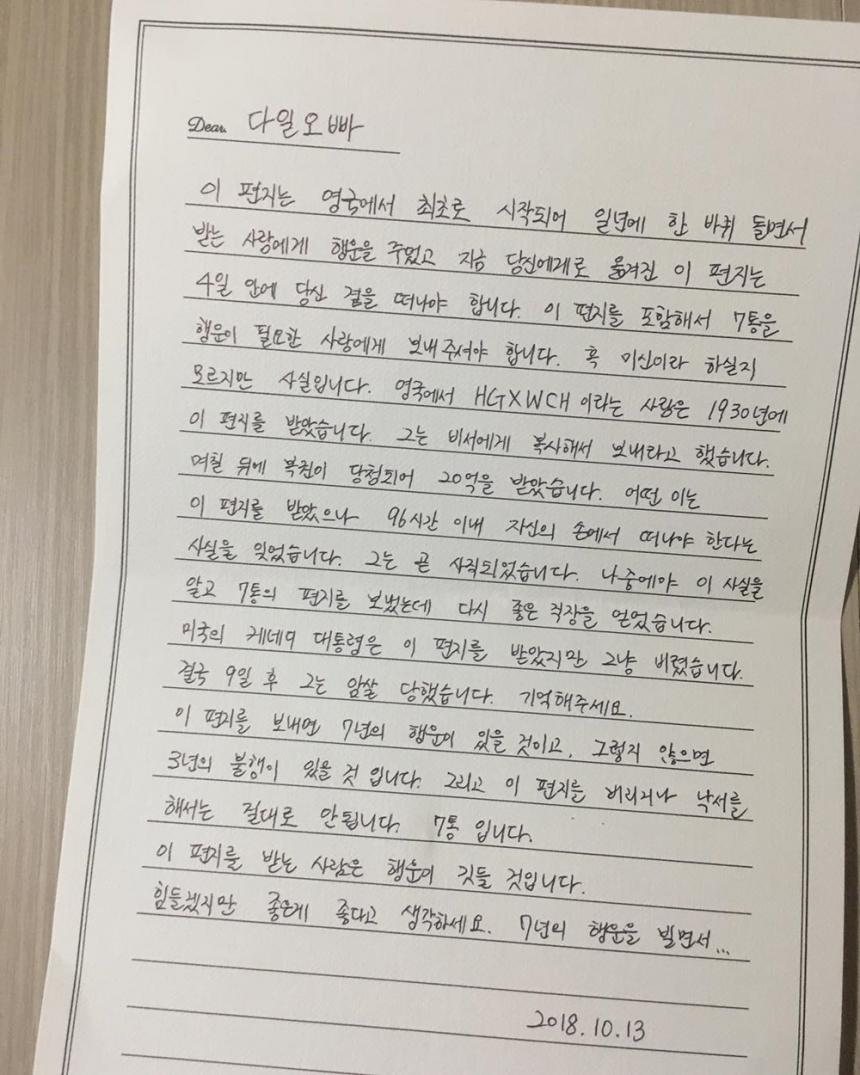 Dear. 다일오빠
이 편지는 영국에서 최초로 시작되어 일년에 한 바퀴 돌면서
받는 사람에게 행운을 주었고 지금 당신에게로 옮겨진 이 편지는
4일 안에 당신 곁을 떠나야 합니다. 이 편지를 포함해서 7통을
행운이 필요한 사람에게 보내주셔야 합니다. 혹 미신이라 하실지
모르지만 사실입니다. 영국에서 HGXWCH이라는 사람은 1930년에
이 편지를 받았습니다. 그는 비서에게 복사해서 보내라고 했습니다.
며칠 뒤에 복권이 당첨되어 20억을 받았습니다. 어떤 이는
이 편지를 받았으나 96시간 이내 자신의 손에서 떠나야 한다는
사실을 잊었습니다. 그는 곧 사직되었습니다. 나중에야 이 사실을
알고 7통의 편지를 보냈는데 다시 좋은 직장을 얻었습니다.
미국의 케네디 대통령은 이 편지를 받았지만 그냥 버렸습니다.
결국 9일 후 그는 암살 당했습니다. 기억해주세요.
이 편지를 보내면 7년의 행운이 있을 것이고, 그렇지 않으면
3년의 불행이 있을 것 입니다. 그리고 이 편지를 버리거나 낙서를
해서는 절대로 안됩니다. 7통 입니다.
이 편지를 받는 사람은 행운이 깃들 것입니다.
힘들겠지만 좋은게 좋다고 생각하세요. 7년의 행운을 빌면서...
2018.10.13